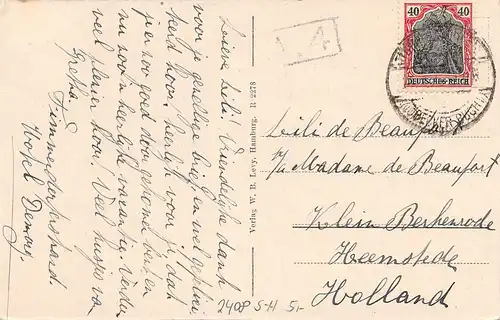 Lieve Lili. Vriendelijk dank
voor je gezellige brief en welgefeliciteerd
hoor. Heerlijk voor je dat
je er zoo goed door gekomen bent en
nu zoo'n heerlijke vacantie. Verder
veel plezier hoor! Veel kusjes van
Gretha.
Timmendorferstrand.
Hotel
1.4
40 40
DEUTSCHES REICH
Verlag W. B. Levy, Hamburg. H 2278
Lili de Beaufort
Madame de Beaufort
Klein Berkenrode
Heemstede
Holland
2408 S-H 5,-